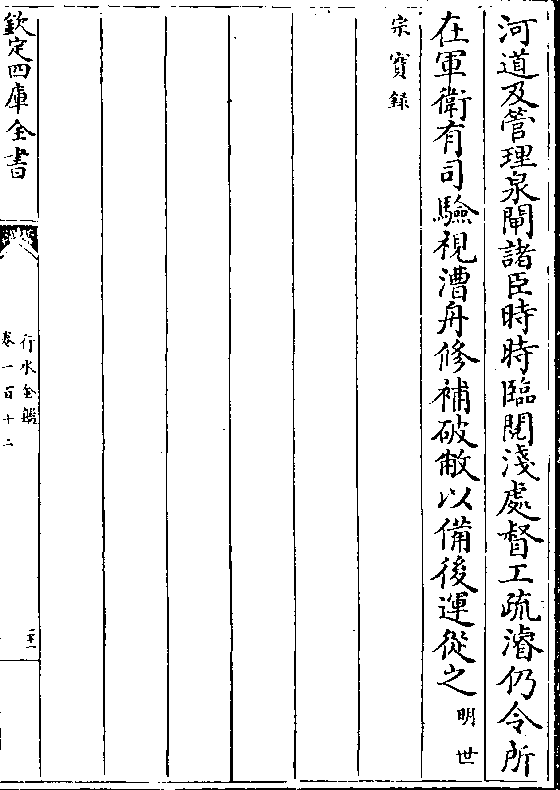 河道及管理泉閘諸臣時時臨閱淺處督工疏濬仍令所
在軍衛有司驗視漕舟修補破敝以備後運從之明世
宗實録
欽定四庫全書
行水金鑑
卷一百十二